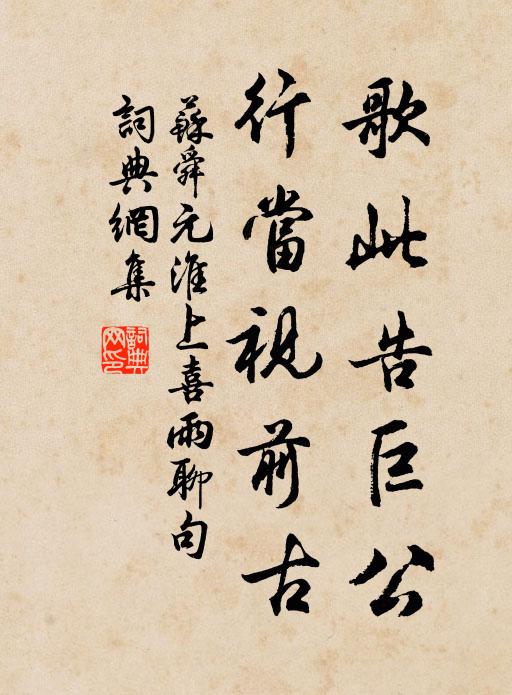 歌此告巨公
行當視前古
蘇舜元淮上喜雨聊句
詞典網集
詞典网印